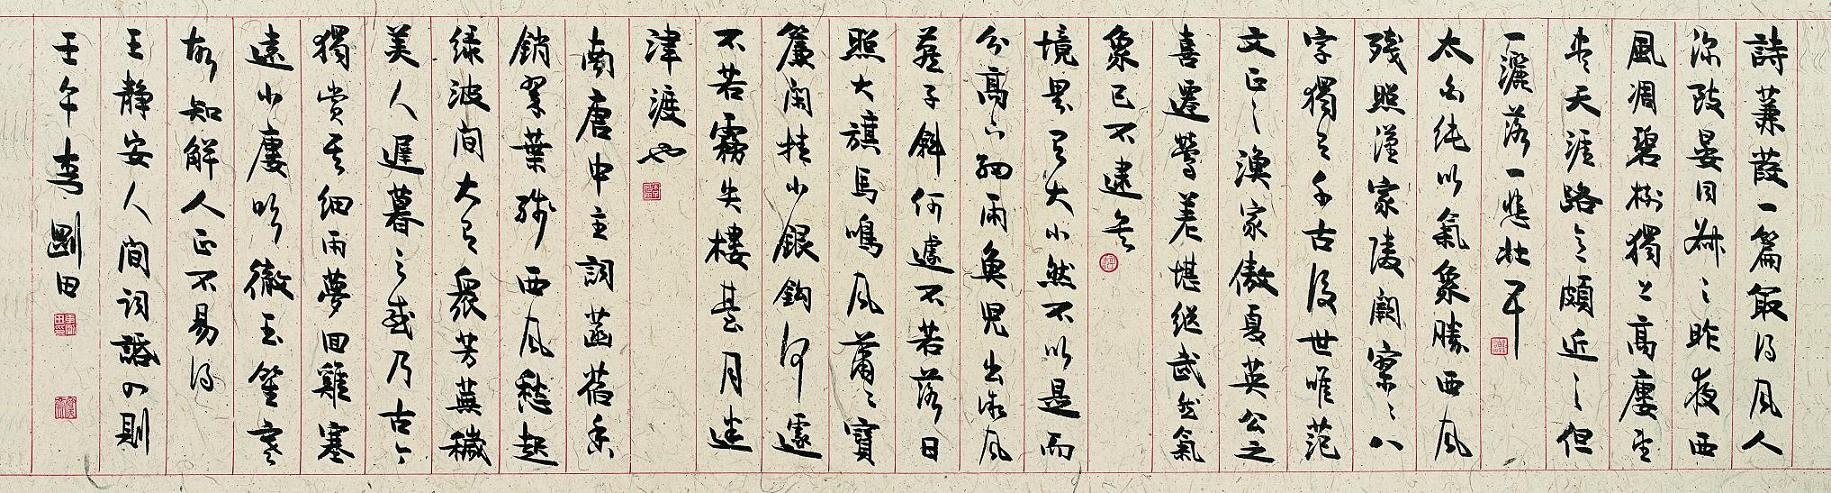 詩蒹葭一篇最得風人
深致晏同叔之昨夜西
風凋碧樹獨上高樓望
盡天涯路意頗近之但
一灑落一悲壯耳
太白純以氣象勝西風
殘照漢家陵闕寥〻八
字獨有千古後世唯范
文正之漁家傲夏英公之
喜遷鶯差堪繼武然氣
象已不逮矣
境界有大小然不以是而
分高下細雨魚兒出微風
燕子斜何遽不若落日
照大旗馬鳴風蕭〻寶
簾閑挂小銀鈎何遽
不若霧失樓臺月迷
津渡也
南唐中主詞菡萏香
銷翠葉殘西風愁起
綠波間大有衆芳蕪穢
美人遲暮之感乃古今
獨賞其細雨夢回雞塞
遠小樓吹徹玉笙寒
故知解人正不易得
王靜安人間詞話四則
壬午李剛田